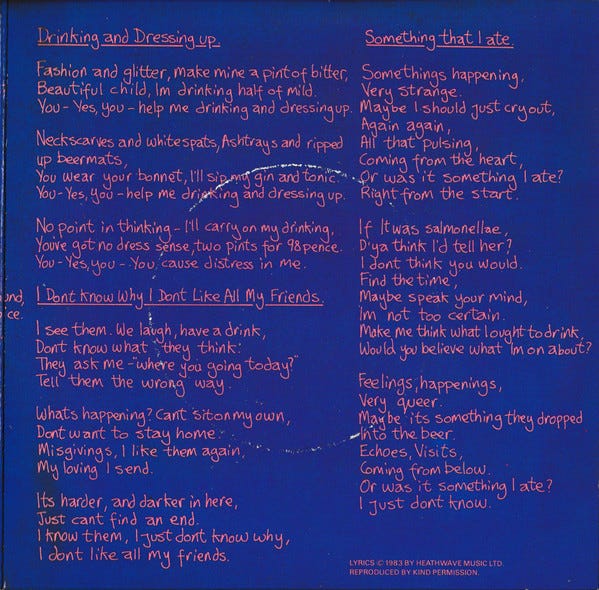 Drinking and Dressing up.
Fashion and glitter, make mine a pint of bitter,
Beautiful child, Im drinking half of mild.
You - Yes, you - help me drinking and dressing up.
Neckscarves and white spats, Ashtrays and ripped
up beermats,
You wear your bonnet, I'll sip my gin and tonic.
You - Yes, you - help me drinking and dressing up.
No point in thinking - I'll carry on my drinking,
You've got no dress sense, two pints for 98 pence.
You - Yes, you - You cause distress in me.
I Dont know Why I Dont Like All My Friends.
I see them. We laugh, have a drink,
Dont know what they think.
They ask me - "where you going today?"
Tell them the wrong way.
Whats happening? Cant sit on my own,
Dont want to stay home.
Misgivings, I like them again,
My loving I send.
Its harder, and darker in here,
Just cant find an end.
I know them, I just dont know why,
I dont like all my friends.
Something that I ate.
Somethings happening,
Very strange.
Maybe I should just cry out,
Again again,
All that pulsing,
Coming from the heart,
Or was it something I ate?
Right from the start.
If It was salmonellae,
D'ya think I'd tell her?
I dont think you would.
Find the time,
Maybe speak your mind,
I'm not too certain.
Make me think what I ought to drink.
Would you believe what Im on about?
Feelings, happenings,
Very queer.
Maybe its something they dropped
Into the beer.
Echoes, Visits,
Coming from below.
Or was it something I ate?
I just dont know.
LYRICS © 1983 BY HEATHWAVE MUSIC LTD.
REPRODUCED BY KIND PERMISSION.